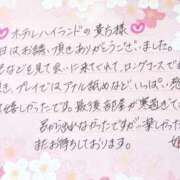 ホテルハイランドの貴方様
日はお誘い頂きありがとうございました。
などを見て会いに来てくれて、ロングコースで
て、プレイではアナル舐めなど、いっぱい
嬉しかったです。最後部屋が寒過ぎて
られなかったですが、楽しかった
またお待ちしております。